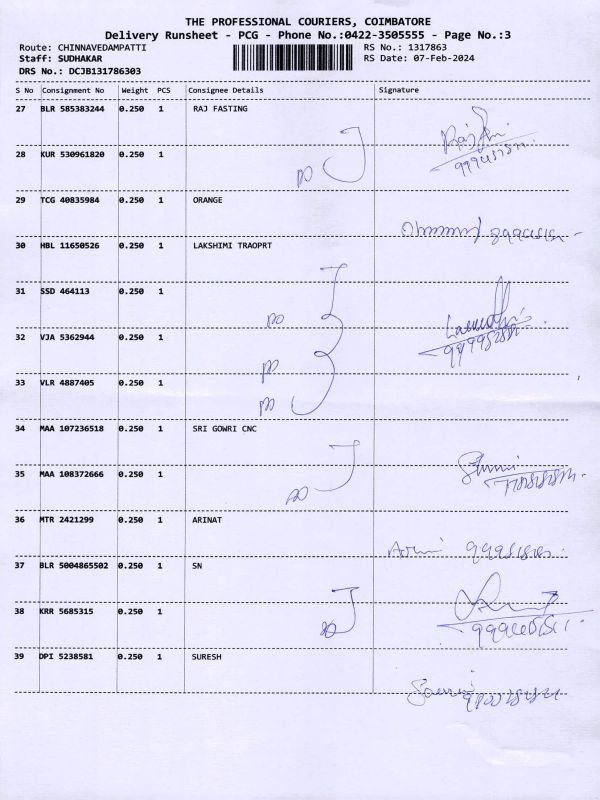 THE PROFESSIONAL COURIERS, COIMBATORE
Delivery Runsheet - PCG - Phone No.:0422-3505555 - Page No.:3
Route: CHINNAVEDAMPATTI RS No.: 1317863
Staff: SUDHAKAR RS Date: 07-Feb-2024
DRS No.: DCJB131786303
S No Consignment No Weight PCS Consignee Details Signature
27 BLR 585383244 0.250 1 RAJ FASTING
28 KUR 530961820 0.250 1
29 TCG 40835984 0.250 1 ORANGE
30 HBL 11650526 0.250 1 LAKSHIMI TRAOPRT
31 SSD 464113 0.250 1
32 VJA 5362944 0.250 1
33 VLR 4887405 0.250 1
34 MAA 107236518 0.250 1 SRI GOWRI CNC
35 MAA 108372666 0.250 1
36 MTR 2421299 0.250 1 ARINAT
37 BLR 5004865502 0.250 1 SN
38 KRR 5685315 0.250 1
39 DPI 5238581 0.250 1 SURESH